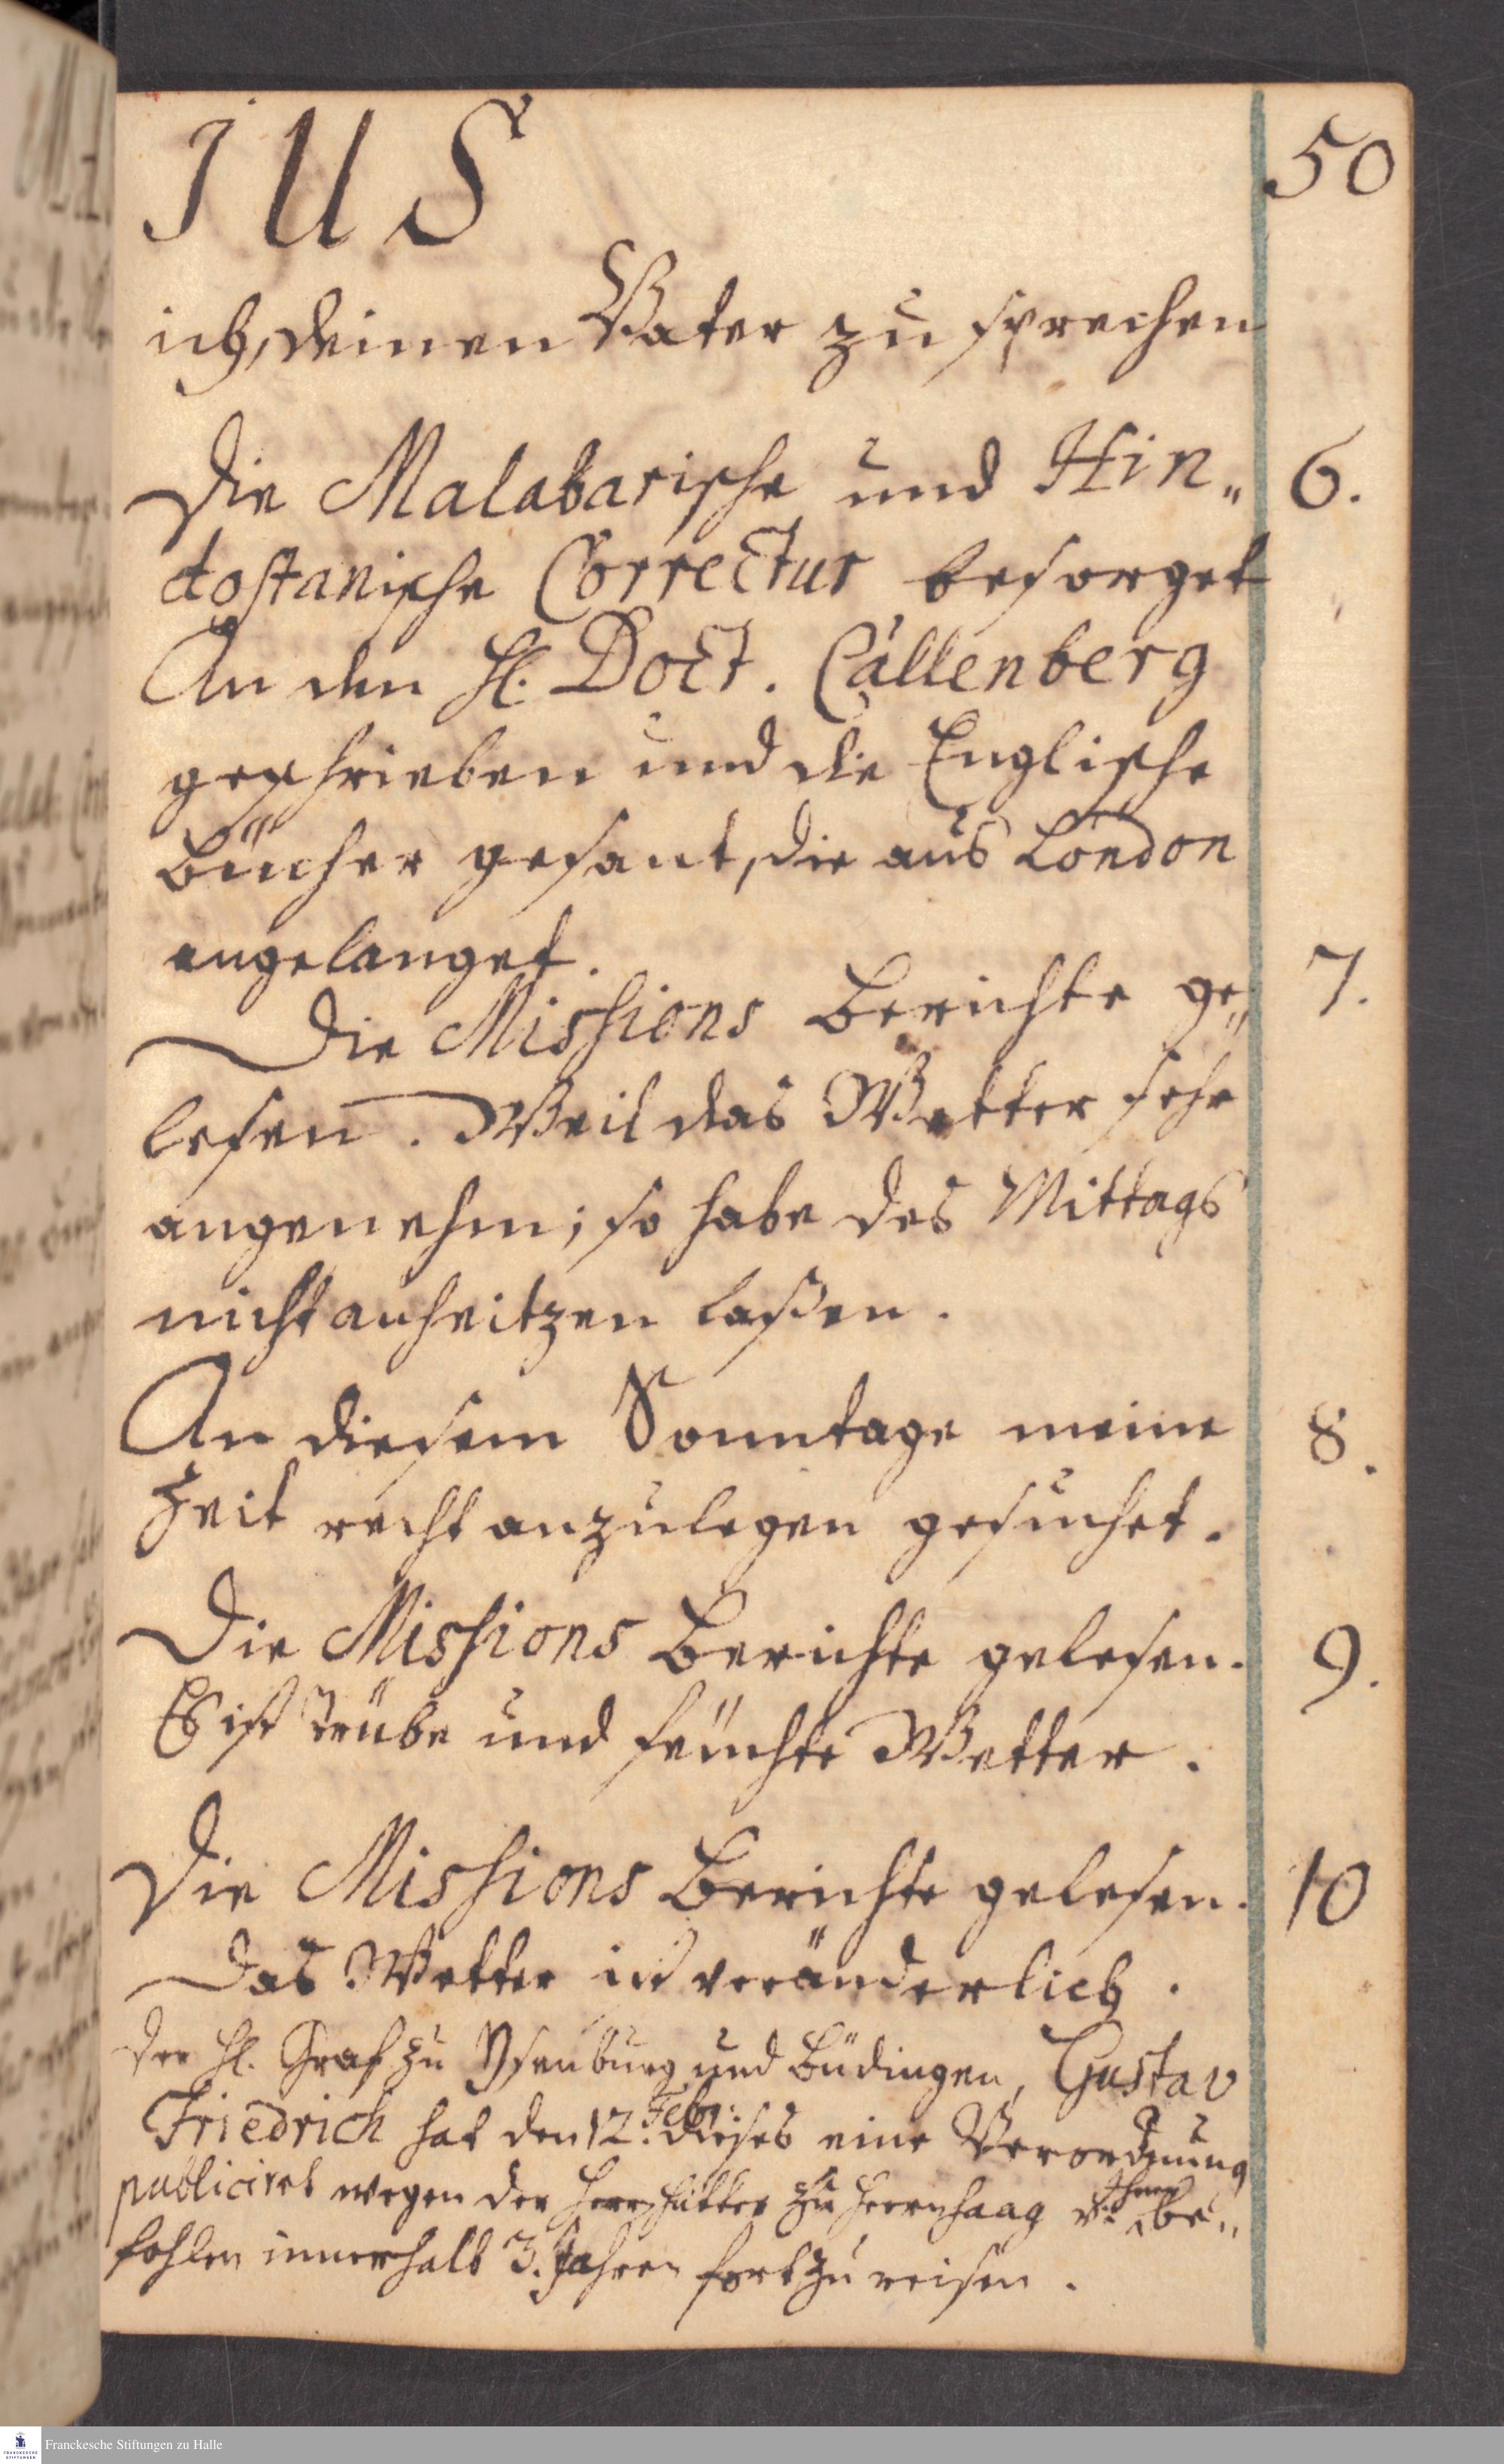 IUS 50
ich, deinen Vater zu sprechen
Die Malabarische und Hin„ 6.
dostanische Correctur besorget
An den H. Doct. Callenberg
geschrieben und die Englische
Bücher gesant, die aus London
angelanget.
Die Missions Berichte ge„ 7.
lesen. Weil das Wetter sehr
angenehm; so habe des Mittags
nicht anheitzen laßen.
An diesem Sonntage meine 8.
Zeit recht anzulegen gesuchet.
Die Missions Berichte gelesen. 9.
Es ist trübe und feüchte Wetter.
Die Missions Berichte gelesen. 10
Das Wetter ist veränderlich.
Der H. Graf zu Ysenburg und Büdingen, Gustav
Friedrich hat den 12. Febr. dieses eine Verordnung
publiciret wegen der Herrnhütter zu Herrnhaag u. Ihnen be„
fohlen innerhalb 3. Jahren fortzureisen.
Franckesche Stiftungen zu Halle